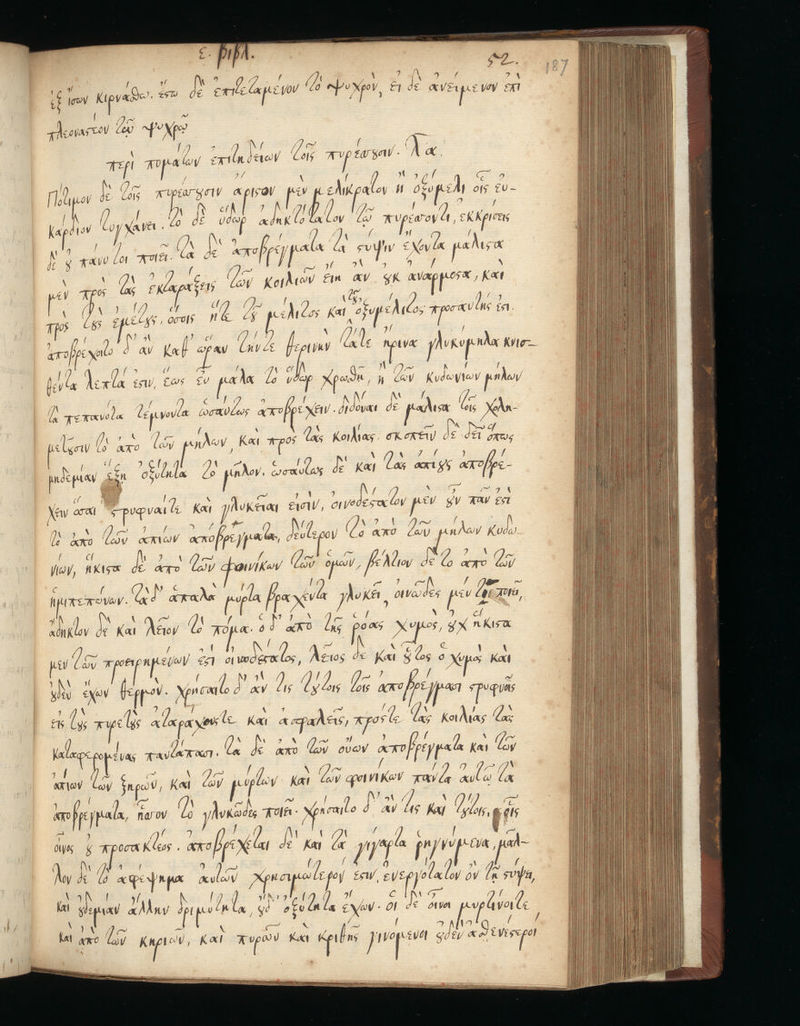 ε. βιβλ. 52. 187
ἐξ ἴσων κιρνάσθω. ἔστω δὲ ἐπιτεταμένον τὸ ψυχρὸν, εἰ δὲ ἀνείμενον ἐπὶ
πλεοναστέον τοῦ ψυχροῦ
περὶ πομάτων ἐπιτηδείων τοῖς πυρέσσουσιν. λα.
Πότιμον δὲ τοῖς πυρέσσουσιν ἄριστον μὲν μελίκρατον ἢ ὀξύμελι οἷς εὐ-
κάρδιον τυγχάνει. τὸ δὲ ὕδωρ ἀδηκτότατον τῷ πυρέσσοντι, ἐκκρίσεις
δὲ οὐ πάνυ τοι ποιεῖ. τὰ δὲ ἀποβρέγματα τὰ στύψιν ἔχοντα μάλιστα
μὲν πρὸς τὰς ἐκταράξεις τῶν κοιλιῶν εἴη ἂν οὐκ ἀνάρμοστα, καὶ
πρὸς τοὺς ἐμέτους, ὅσοις ἥτε τοῦ μέλιτος καὶ τοῦ ὀξυμέλιτος προσάντης ἐστι.
ἀποβρέχοιτο δ' ἂν καθ' ὥραν τήντε θερινὴν τάτε ἠρινὰ γλυκύμηλα κνισ-
θέντα λεπτά ἐστιν, ἕως εὖ μάλα τὸ ὕδωρ χρωσθῇ, ἢ τῶν κυδωνίων μήλων
τὰ πεπανότα τέμνοντα ὡσαύτως ἀποβρέχειν. διδόναι δὲ μάλιστα τοῖς χολη-
μετοῦσιν τὸ ἀπὸ τῶν μήλων, καὶ πρὸς τὰς κοιλίας. σκοπεῖν δὲ δεῖ ὅπως
μηδεμίαν ἕξη ὀξύτητα τὸ μῆλον. ὡσαύτως δὲ καὶ τὰς ἀπίους ἀποβρέ-
χειν ὅσαι στρυφναίτε καὶ γλυκεῖαι εἰσὶν, οἰνοδέστατον μὲν οὖν πᾶν ἐστὶ
τὸ ἀπὸ τῶν ἀπίων ἀπόβρεγματα, δεύτερον τὸ ἀπὸ τῶν μήλων κυδω-
νίων, ἥκιστα δὲ ἀπὸ τῶν φοινίκων τῶν ὁμῶν, βέλτιον δὲ τὸ ἀπὸ τῶν
ἡμιπεπόνων. τὰ δ' ἁπαλὰ μύρτα βραχέντα γλυκεῖ, οἰνῶδες μέν τι ποιεῖ,
ἄδηκτον δὲ καὶ λεῖον τὸ πόμα. ὁ δ' ἀπὸ τῆς ῥόας χυμὸς, οὐχ ἥκιστα
μὲν τῶν προειρημένων ἐστὶ οἰνοδέστατος, λεῖος δὲ καὶ οὗτος ὁ χυμὸς καὶ
οὐδὲν ἔχων θερμὸν. χρήσαιτο δ' ἄν τις τούτοις τοῖς ἀποβρέγμασι στρυφνοῖς
εἰς τοὺς πυρετοὺς ἀταράχοιςτε καὶ ἀσφαλεῖς, πρόςτε τὰς κοιλίας τὰς
καταφερομένας παντάπασι. τὰ δὲ ἀπὸ τῶν οὔων ἀποβρέγματα καὶ τῶν
ἀπίων τῶν ξηρῶν, καὶ τῶν μύρτων καὶ τῶν φοινίκων πάντα αὐτῷ τὰ
ἀποβρέγματα, ἧσσον τὸ γλυκῶδες ποιεῖ. χρήσαιτο δ' ἄν τις καὶ τούτοις, οἷς
οἶνος οὐ προσακτέος. ἀποβρέχεται δὲ καὶ τὰ γίγαρτα ῥηγνύμενα, μᾶλ-
λον δὲ τὸ ἀφέψημα αὐτῶν χρησιμώτερόν ἐστιν, ἐνεργότατον ὂν τῇ στύψει,
καὶ οὐδεμίαν ἄλλην δριμύτητα, οὐδ' ὀξύτητα ἔχων. οἱ δὲ οἶνοι μυρτίνοιτε
καὶ ἀπὸ τῶν κηριῶν, καὶ πυρῶν καὶ κριθῆς γινόμενοι οὐδὲν ἀσθενέστεροί